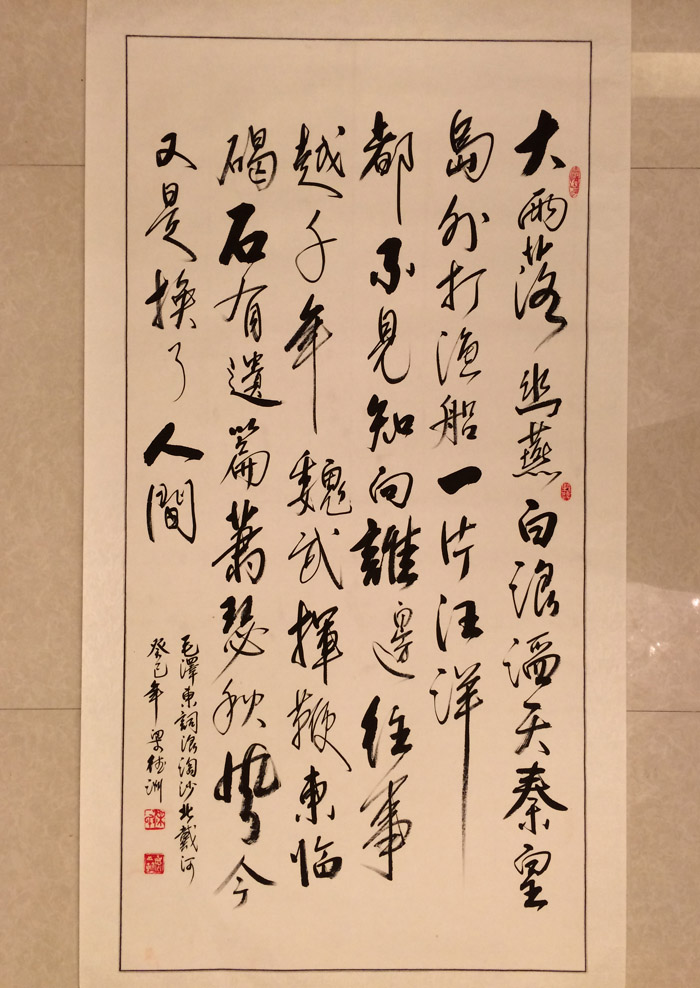 大雨落幽燕白浪滔天秦皇
島外打渔船一片汪洋
都不見知向誰邊往事
越千年魏武揮鞭東臨
碣石有遺篇蕭瑟秋風今
又是換了人間
毛澤東詞浪淘沙北戴河
癸巳年梁德洲